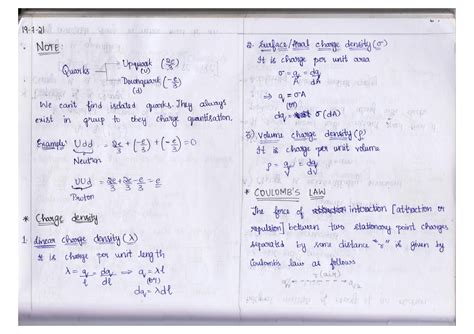 19-7-21
• NOTE:
Quarks → Upquark (2e/3)
(U)
→ Downquark (-e/3)
(d)
We can't find isolated quarks. They always
exist in group to they charge quantisation.
Example: Udd = 2e/3 + (-e/3) + (-e/3) = 0
Neutron
UUd = 2e/3 + 2e/3 - e/3 = e
Proton
* Charge density
1. Linear Charge density (λ)
It is charge per unit length
λ = q/ℓ = dq/dℓ ⟹ q = λℓ
(or)
dq = λdℓ
2. Surface/Areal charge density (σ)
It is charge per unit area
σ = q/A = dq/dA
⟹ q = σA
(or)
dq = σ (dA)
3) Volume charge density (ρ)
It is charge per unit volume
ρ = q/V = dq/dV
* COULOMB'S LAW
The force of interaction [attraction or
repulsion] between two stationary point charges
separated by some distance "r" is given by
Coulombs law as follows
r (air)